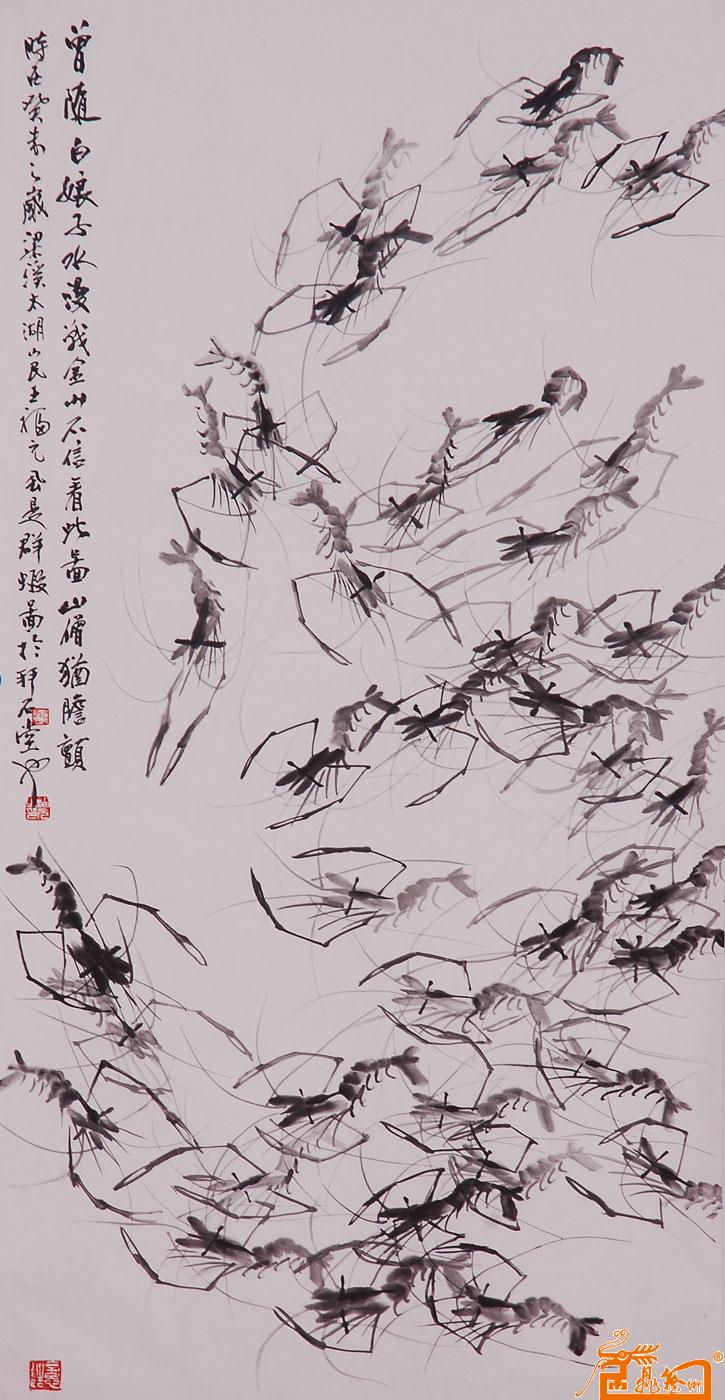 曾随白娘子水漫战金山不信看此图山僧犹胆颤
时在癸未之岁梁溪太湖山民王福元风是群虾图於拜石堂